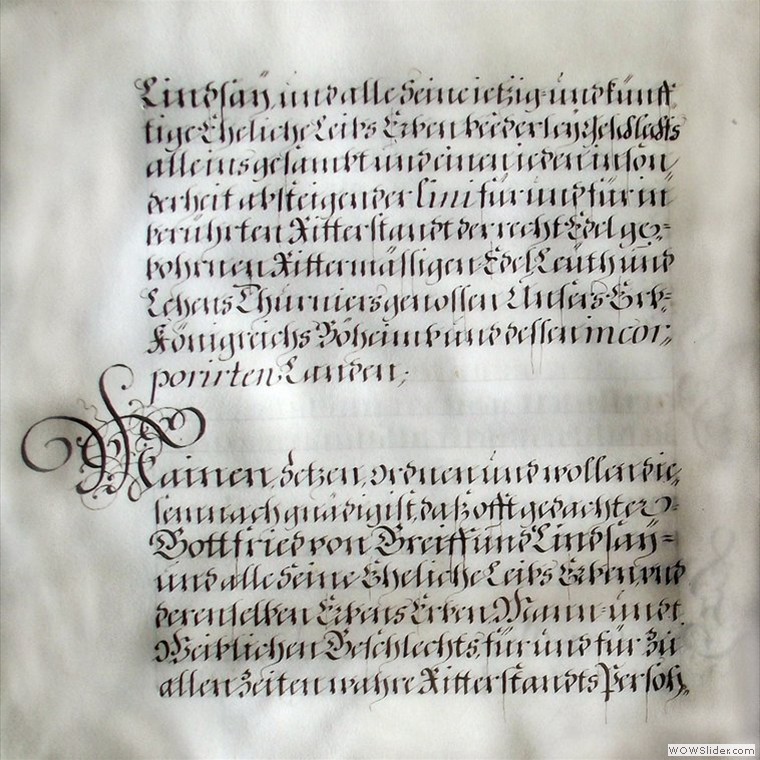 Lindsaÿ, und alle Seine ietzig- und künff
tige Eheliche Leibs Erben beederleÿ Geschlechts
alle ins gesambt und einen ieden in son,
derheit absteigender lini für und für in
berührten Ritterstandt der recht Edel ge=
bohrnen Rittermässigen Edel Leüth und
Lehens Thurniersgenossen Unsers Erb-
Königreichs Böheimb und dessen incor,
porirten Landen;
Mainen, Setzen, ordnen und wollen die,
semnach gnädigist, daß offtgedachter
Gottfried von Greiff und Lindsaÿ=
und alle Seine Eheliche Leibs Erben, und
derenselben Erbens Erben, Mann- undt
Weiblichen Geschlechts, für und für Zu
allen Zeiten wahre Ritterstandts Persoh,
WOWSlider.com